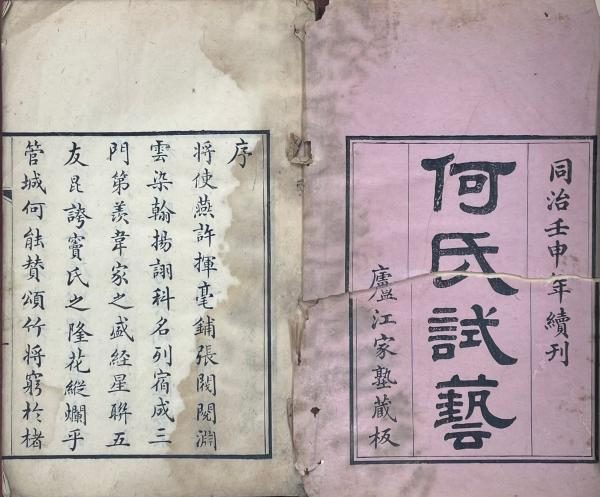 同治壬申年續刊
何氏試藝
廬江家塾藏板
序
將使燕許揮毫鋪張閥閱淵
雲染翰揚詡科名列宿成三
門第羨韋家之盛经星聯五
友昆誇竇氏之隆花縱斕乎
管城何能贊頌竹將窮於楮